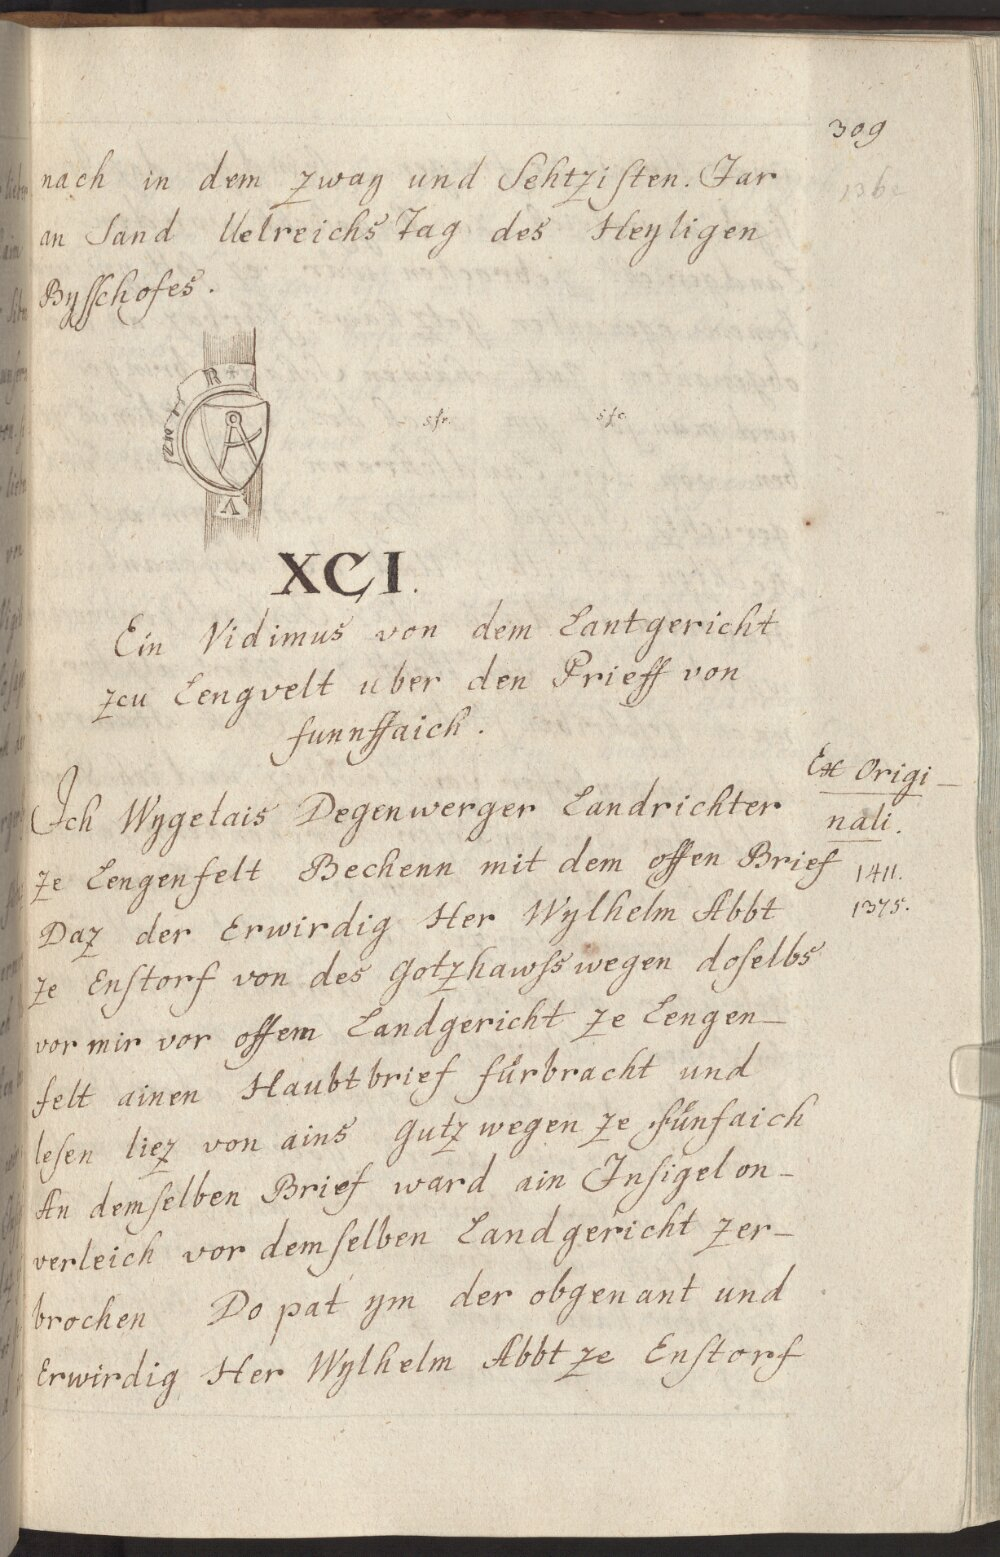 309
nach in dem zway und Sehtzisten. Jar
an Sand Uelreichs Tag des Heyligen
Bysschofes.
XCI.
Ein Vidimus von dem Lantgericht
zcu Lengvelt uber den Prieff von
funnffaich.
Ex Origi-
nali.
1411.
1375.
Ich Wygelais Degenwerger Landrichter
ze Lengenfelt Bechenn mit dem offen Brief
Daz der Erwirdig Her Wylhelm Abbt
ze Enstorf von des Gotzhawss wegen doselbs
vor mir vor offem Landgericht ze Lengen-
felt ainen Haubtbrief fürbracht und
lesen liez von ains Gutz wegen ze fünfaich
An demselben Brief ward ain Insigel on-
verleich vor demselben Landgericht zer-
brochen Do pat ym der obgenant und
Erwirdig Her Wylhelm Abbt ze Enstorf